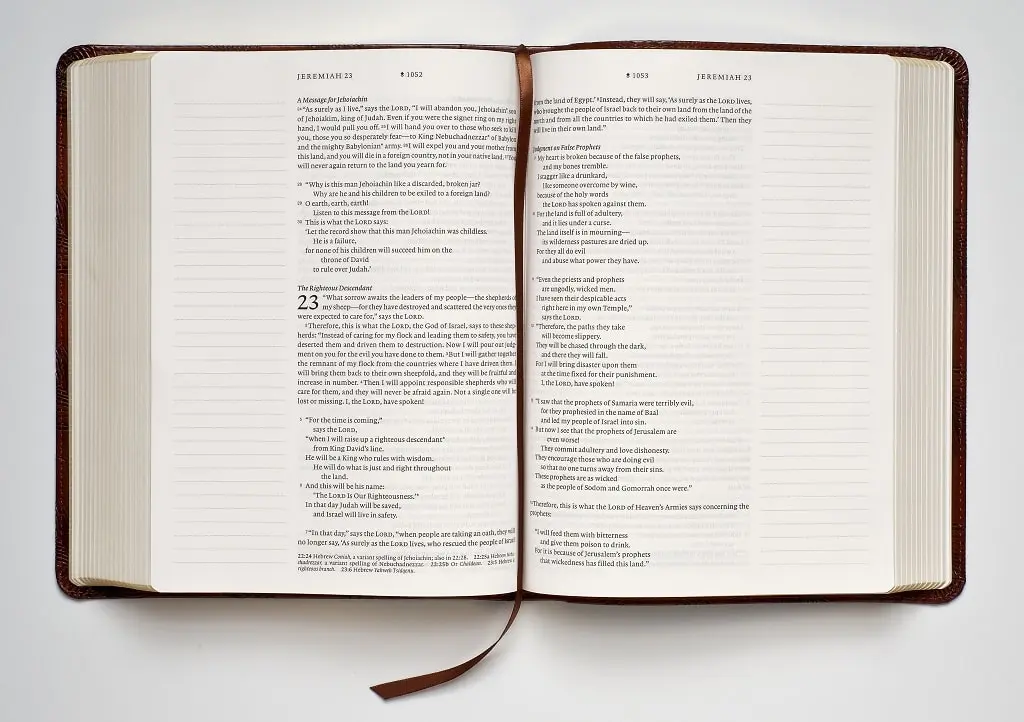 JEREMIAH 23 1052
A Message for Jehoiachin
24 "As surely as I live," says the LORD, "I will abandon you, Jehoiachin* son
of Jehoiakim, king of Judah. Even if you were the signet ring on my right
hand, I would pull you off. 25 I will hand you over to those who seek to kill
you, those you so desperately fear—to King Nebuchadnezzar* of Babylon
and the mighty Babylonian* army. 26 I will expel you and your mother from
this land, and you will die in a foreign country, not in your native land. 27 You
will never again return to the land you yearn for.
28 "Why is this man Jehoiachin like a discarded, broken jar?
Why are he and his children to be exiled to a foreign land?
29 O earth, earth, earth!
Listen to this message from the LORD!
30 This is what the LORD says:
'Let the record show that this man Jehoiachin was childless.
He is a failure,
for none of his children will succeed him on the
throne of David
to rule over Judah.'
The Righteous Descendant
23 "What sorrow awaits the leaders of my people—the shepherds of
my sheep—for they have destroyed and scattered the very ones they
were expected to care for," says the LORD.
2 Therefore, this is what the LORD, the God of Israel, says to these shep-
herds: "Instead of caring for my flock and leading them to safety, you have
deserted them and driven them to destruction. Now I will pour out judg-
ment on you for the evil you have done to them. 3 But I will gather together
the remnant of my flock from the countries where I have driven them. I
will bring them back to their own sheepfold, and they will be fruitful and
increase in number. 4 Then I will appoint responsible shepherds who will
care for them, and they will never be afraid again. Not a single one will be
lost or missing. I, the LORD, have spoken!
5 "For the time is coming,"
says the LORD,
"when I will raise up a righteous descendant*
from King David's line.
He will be a King who rules with wisdom.
He will do what is just and right throughout
the land.
6 And this will be his name:
'The LORD Is Our Righteousness.'*
In that day Judah will be saved,
and Israel will live in safety.
7 "In that day," says the LORD, "when people are taking an oath, they will
no longer say, 'As surely as the LORD lives, who rescued the people of Israel
22:24 Hebrew Coniah, a variant spelling of Jehoiachin; also in 22:28. 22:25a Hebrew Nebu-
chadrezzar, a variant spelling of Nebuchadnezzar. 22:25b Or Chaldean. 23:5 Hebrew a
righteous branch. 23:6 Hebrew Yahweh Tsidqenu.
1053 JEREMIAH 23
from the land of Egypt.' 8 Instead, they will say, 'As surely as the LORD lives,
who brought the people of Israel back to their own land from the land of the
north and from all the countries to which he had exiled them.' Then they
will live in their own land."
Judgment on False Prophets
9 My heart is broken because of the false prophets,
and my bones tremble.
I stagger like a drunkard,
like someone overcome by wine,
because of the holy words
the LORD has spoken against them.
10 For the land is full of adultery,
and it lies under a curse.
The land itself is in mourning—
its wilderness pastures are dried up.
For they all do evil
and abuse what power they have.
11 "Even the priests and prophets
are ungodly, wicked men.
I have seen their despicable acts
right here in my own Temple,"
says the LORD.
12 "Therefore, the paths they take
will become slippery.
They will be chased through the dark,
and there they will fall.
For I will bring disaster upon them
at the time fixed for their punishment.
I, the LORD, have spoken!
13 "I saw that the prophets of Samaria were terribly evil,
for they prophesied in the name of Baal
and led my people of Israel into sin.
14 But now I see that the prophets of Jerusalem are
even worse!
They commit adultery and love dishonesty.
They encourage those who are doing evil
so that no one turns away from their sins.
These prophets are as wicked
as the people of Sodom and Gomorrah once were."
15 Therefore, this is what the LORD of Heaven's Armies says concerning the
prophets:
"I will feed them with bitterness
and give them poison to drink.
For it is because of Jerusalem's prophets
that wickedness has filled this land."